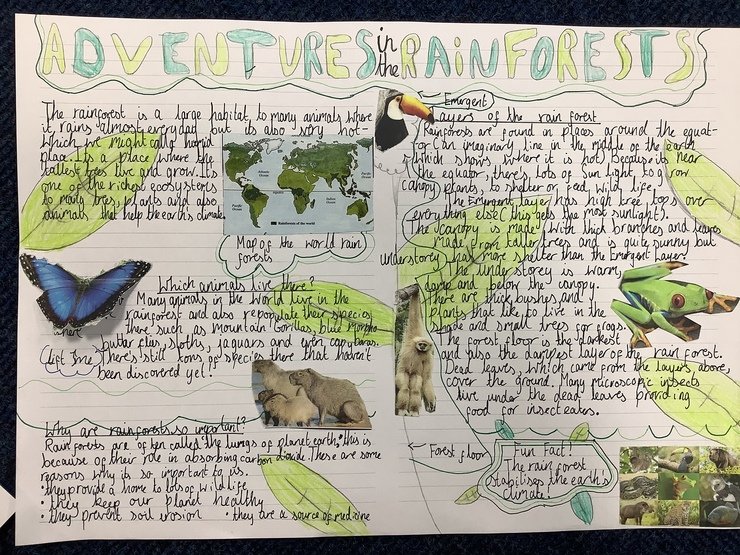 ADVENTURES in the RAINFORESTS
The rainforest is a large habitat to many animals where
it rains almost everyday but its also very hot-
which we might call a humid
place. Its a place where the
tallest trees live and grow. Its
one of the richest ecosystems
to many trees, plants and also
animals that help the earths climate.
Atlantic Ocean
Pacific Ocean
Indian Ocean
Pacific Ocean
Rainforests of the world
Map of the world rain
forests
Which animals live there?
Many animals in the World live in the
rainforest and also repopulate their species
there such as mountain Gorillas, blue Morpho
butterflies, sloths, jaguars and even capybaras.
There's still tons of species there that haven't
been discovered yet!
Why are rainforests so important?
Rainforests are often called "the lungs of planet earth" this is
because of their role in absorbing carbon dioxide. These are some
reasons why its so important to us.
• they provide a home to lots of wildlife
• they keep our planet healthy
• they prevent soil erosion • they are a source of medicine
Emergent
Layers of the rain forest
Rainforests are found in places around the equat-
or (an imaginary line in the middle of the earth
which shows where it is hot). Because its near
the equator, there's lots of sun light to grow
canopy
plants to shelter or feed wild life.
The Emergent layer has high tree tops over
everything else (this gets the most sunlight).
The canopy is made with thick branches and leaves
made from taller trees and is quite sunny but
understorey
has more shelter than the Emergent Layer.
The understorey is warm,
damp and below the canopy.
There are thick bushes and
plants that like to live in the
shade and small trees for frogs.
The forest floor is the darkest
and also the dampest layer of the rain forest.
Dead leaves, which came from the layers above,
cover the ground. Many microscopic insects
live under the dead leaves providing
food for insect eaters.
Forest floor
Fun Fact!
The rain forest
Stabilises the earth's
climate!